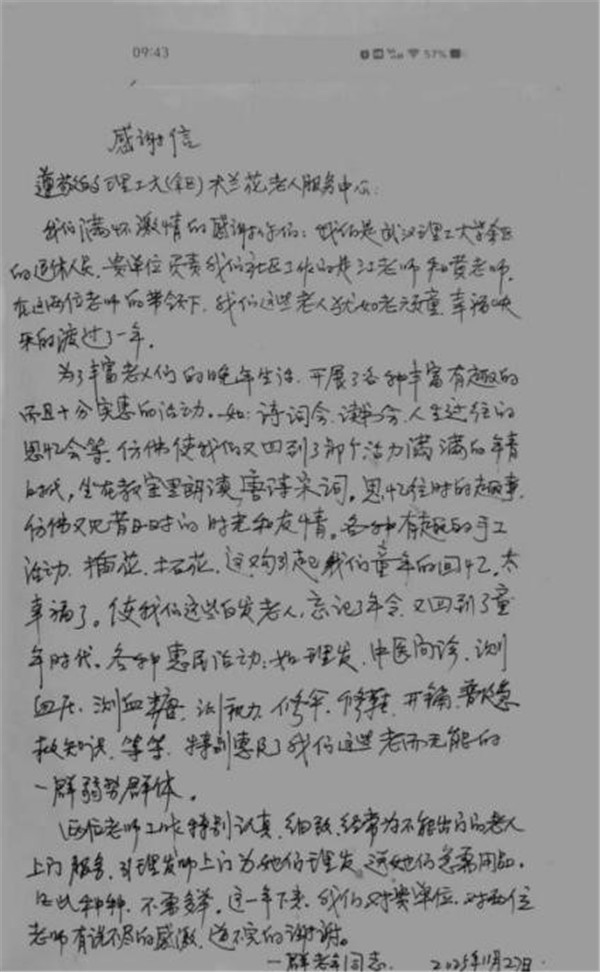 09:43
57%
感谢信
尊敬的理工大(余区)木兰花老人服务中心:
我们满怀激情的感谢你们:我们是武汉理工大学余区
的退休人员,贵单位负责我们社区工作的是江老师和黄老师,
在这两位老师的带领下,我们这些老人犹如老顽童,幸福快
乐的渡过了一年。
为了丰富老人们的晚年生活,开展了各种丰富有趣的
而且十分实惠的活动。如:诗词会、读书会、人生过往的
思忆会等,仿佛使我们又回到了那个活力满满的年青
时代,坐在教室里朗读唐诗宋词。思忆往时的趣事,
仿佛又见昔日时的时光和友情。各种有趣的手工
活动,插花、拓花,这又勾引起我们童年的回忆,太
幸福了。使我们这些白发老人,忘记了年令,又回到了童
年时代。各种惠民活动:如理发、中医问诊、测
血压、测血糖、测视力、修伞、修鞋、开锁、普及急
救知识、等等,特别惠及了我们这些老而无能的
一群弱势群体。
这两位老师工作特别认真、细致、经常为不能出门的老人
上门服务,引理发师上门为她们理发,送她们急需用品,
凡此种种,不需多举。这一年下来,我们对贵单位,对两位
老师有说不尽的感激,道不完的谢谢。
一群老年同志。 2025年11月27日.